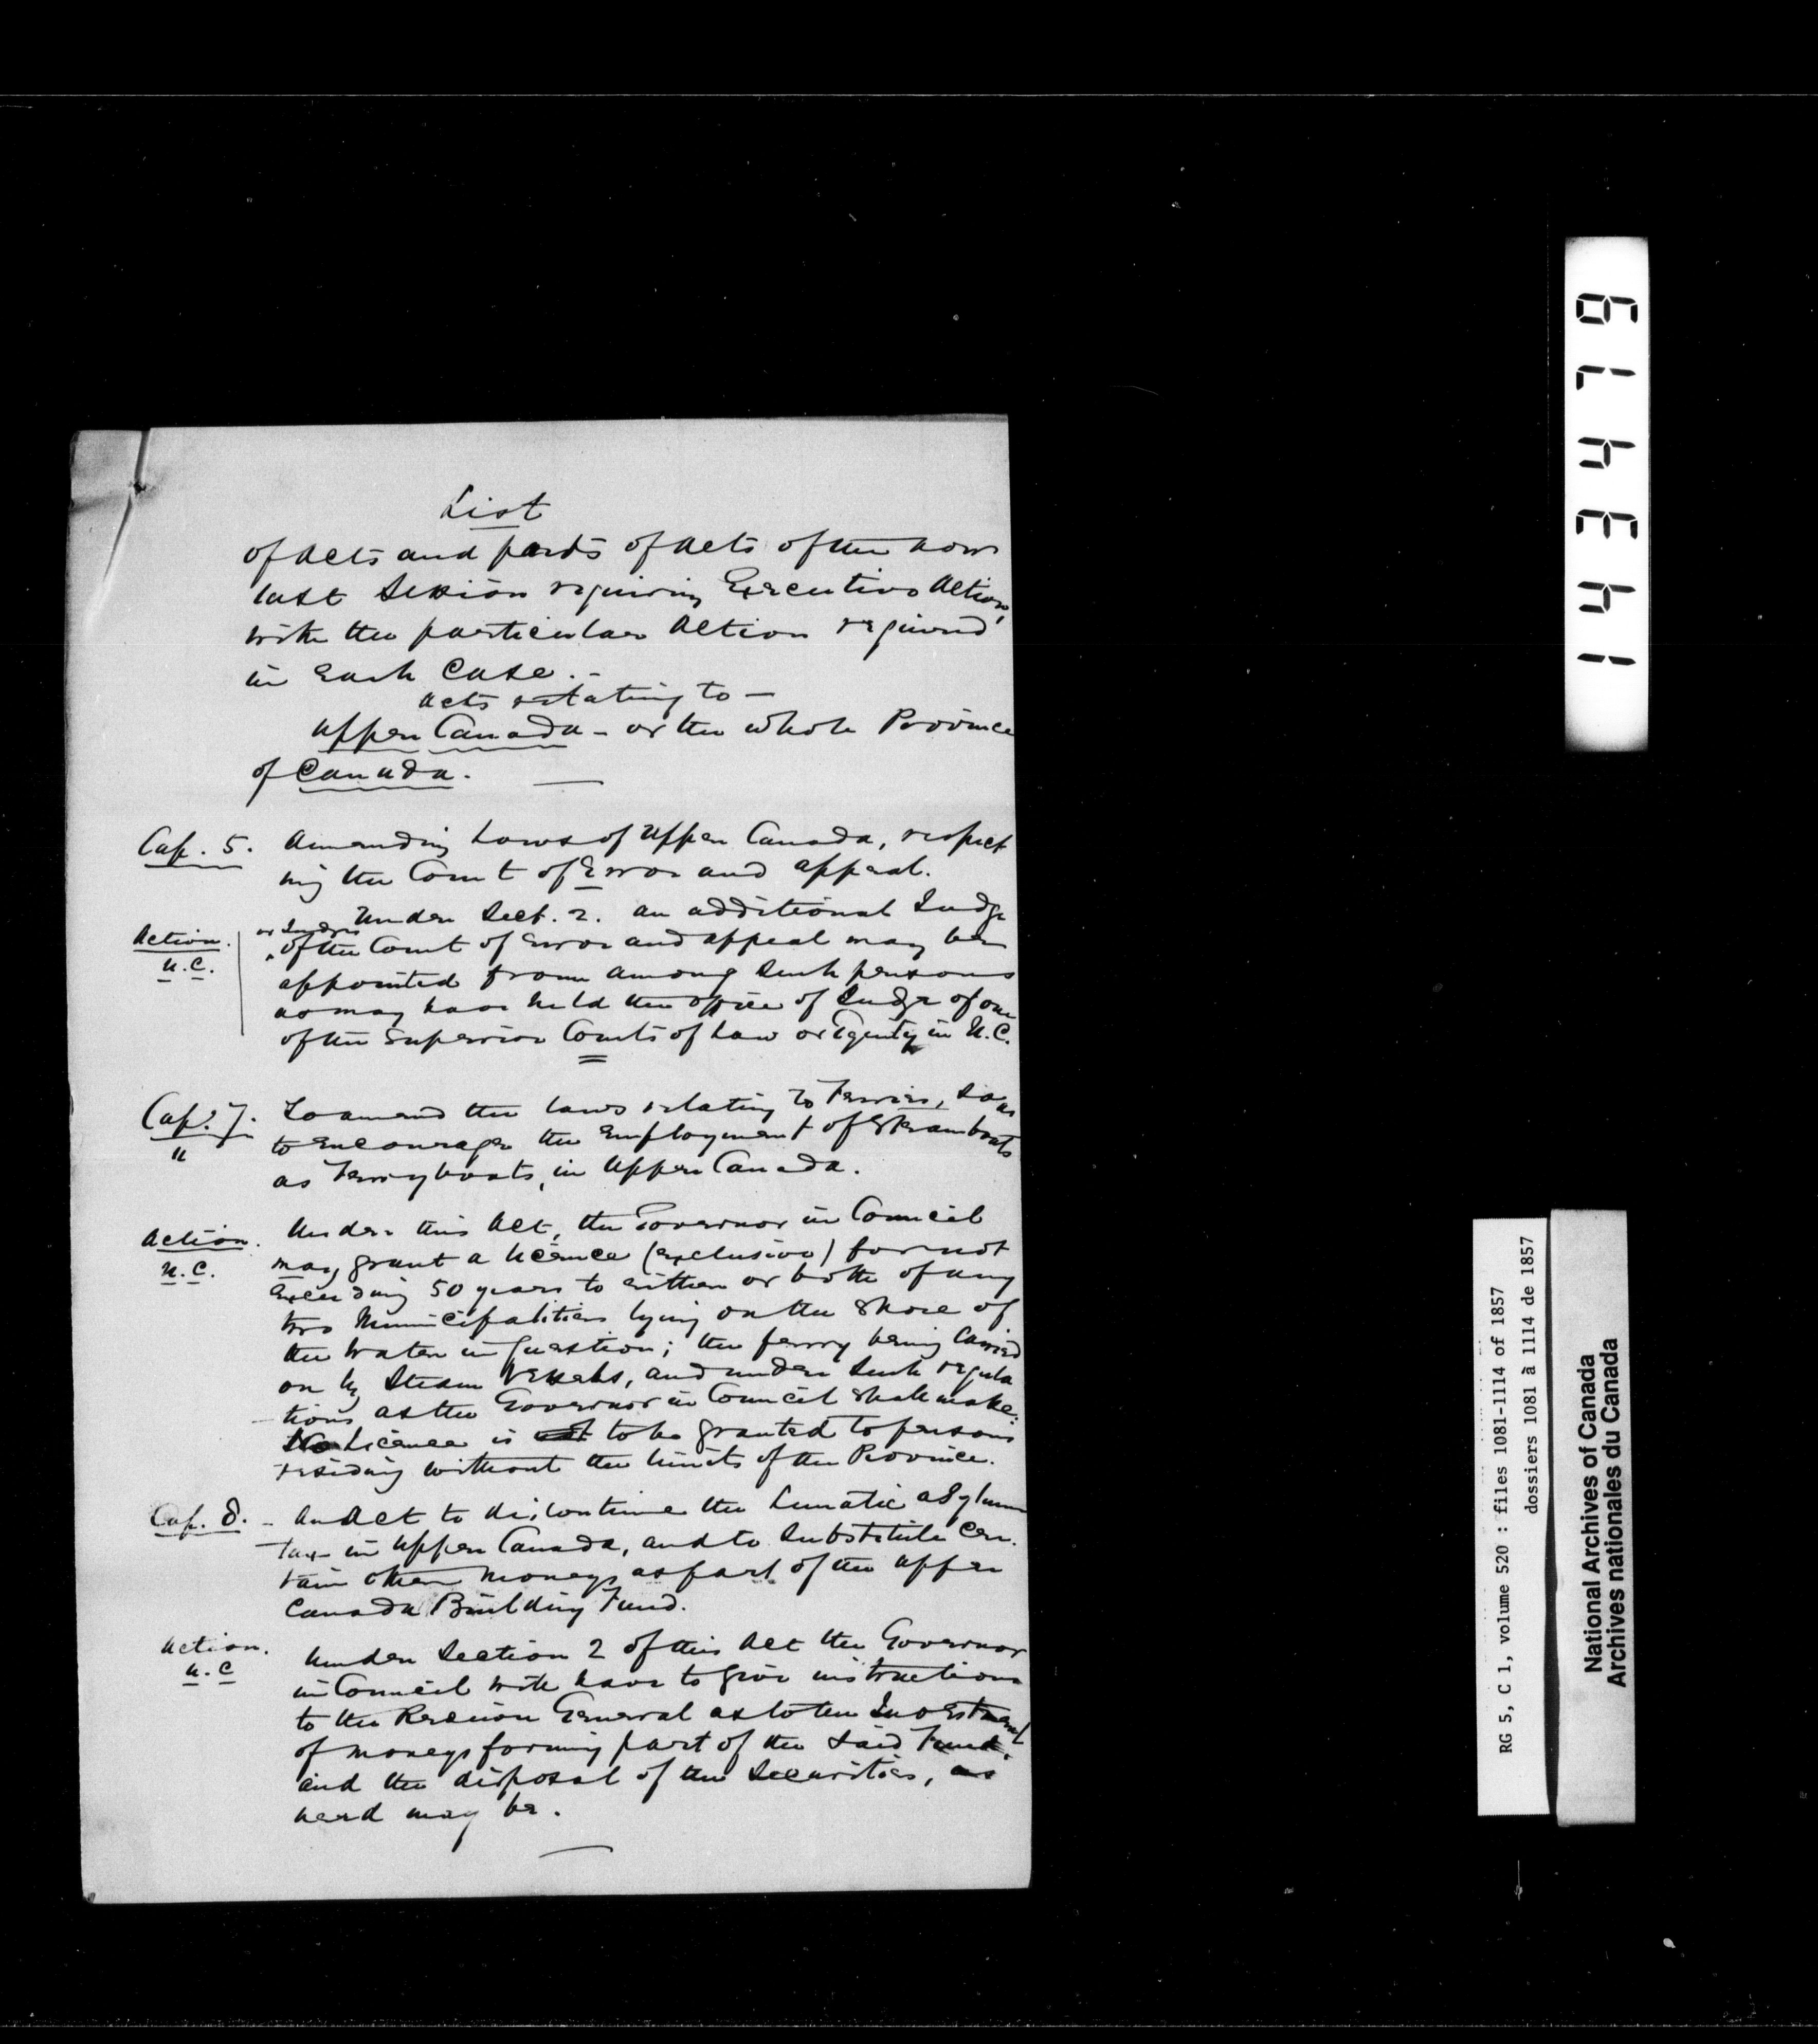 List
of Acts and parts of Acts of the now
last Session requiring Executive Action,
with the particular Action required
in each Case.-
Acts relating to -
Upper Canada - or the whole Province
of Canada. -
Cap. 5. Amending Laws of Upper Canada, respect
ing the Court of Error and Appeal.
Under Sect. 2. an additional Judge
or Judges
Action. of the Court of Error and Appeal may be
U.C. appointed from among such persons
as may have held the office of Judge of one
of the Superior Courts of Law or Equity in U.C.
Cap. 7. To amend the laws relating to Ferries, so as
" to encourage the employment of Steamboats
as Ferryboats, in Upper Canada.
Action. Under this Act, the Governor in Council
U.C. may grant a licence (exclusive) for not
exceeding 50 years to either or both of any
two Municipalities lying on the Shore of
the Water in question; the ferry being carried
on by Steam Vessels, and under such regula
tions as the Governor in Council shall make:
No licence is not to be granted to persons
residing without the limits of the Province.
Cap. 8. - An Act to discontinue the Lunatic asylum
tax in Upper Canada, and to substitute cer.
tain other moneys as part of the Upper
Canada Building Fund.
Action. Under Section 2 of this Act the Governor
U.C in Council will have to give instructions
to the Receiver General as to the Investment
of moneys forming part of the said Fund,
and the disposal of the Securities, as
need may be.
143419
RG 5, C 1, volume 520 : files 1081-1114 of 1857
dossiers 1081 à 1114 de 1857
National Archives of Canada
Archives nationales du Canada